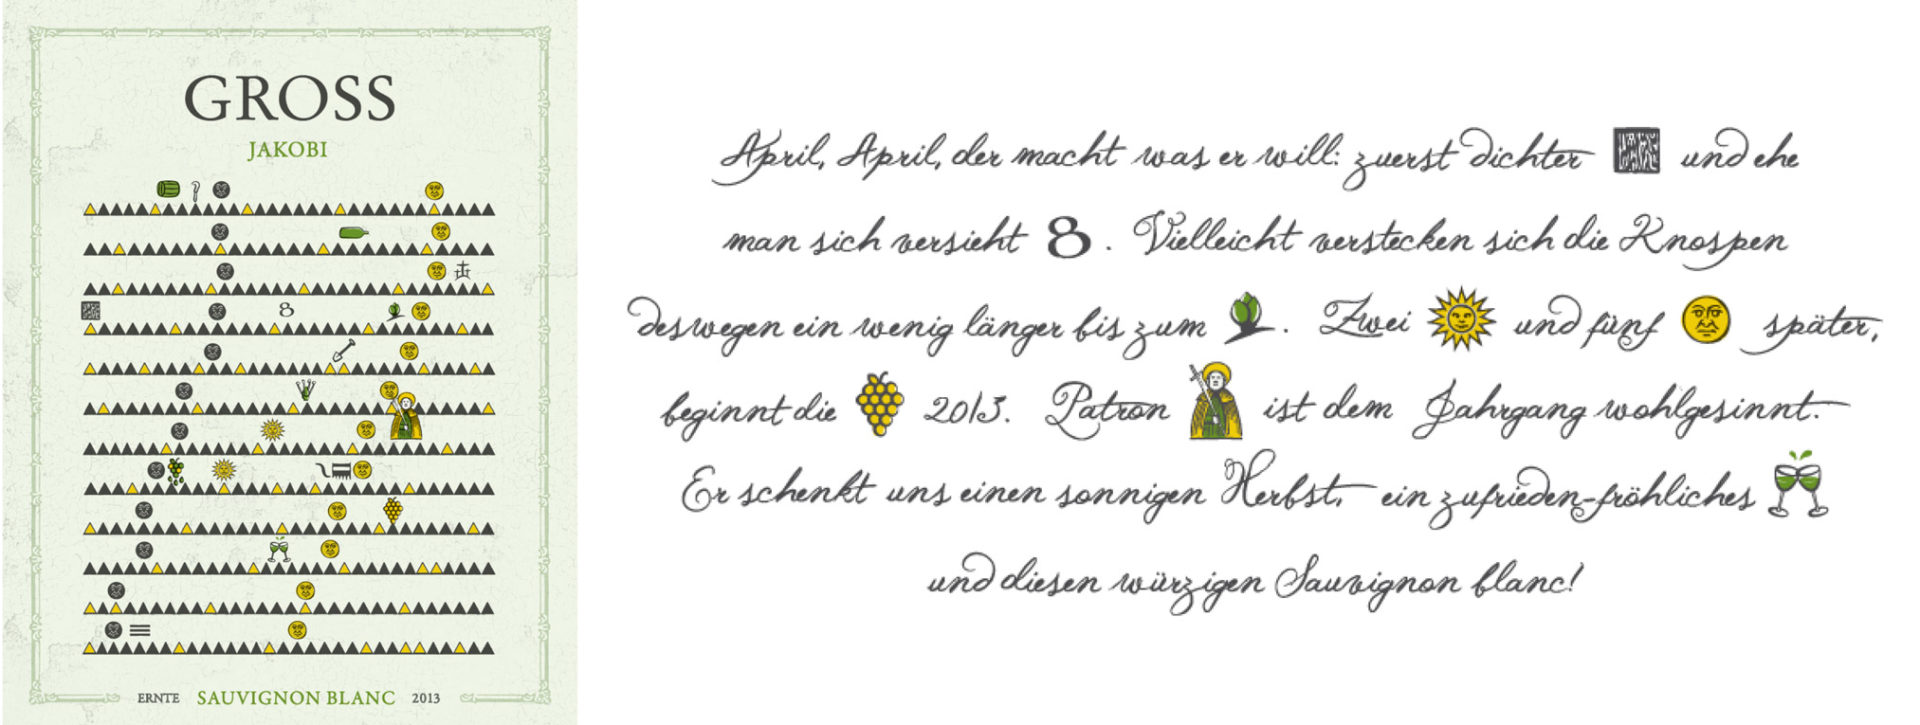 GROSS
JAKOBI
8
ERNTE SAUVIGNON BLANC 2013
April, April, der macht was er will: zuerst dichter und ehe
man sich versieht 8. Vielleicht verstecken sich die Knospen
deswegen ein wenig länger bis zum . Zwei und fünf später,
beginnt die 2013. Patron ist dem Jahrgang wohlgesinnt.
Er schenkt uns einen sonnigen Herbst, ein zufrieden-fröhliches
und diesen würzigen Sauvignon blanc!